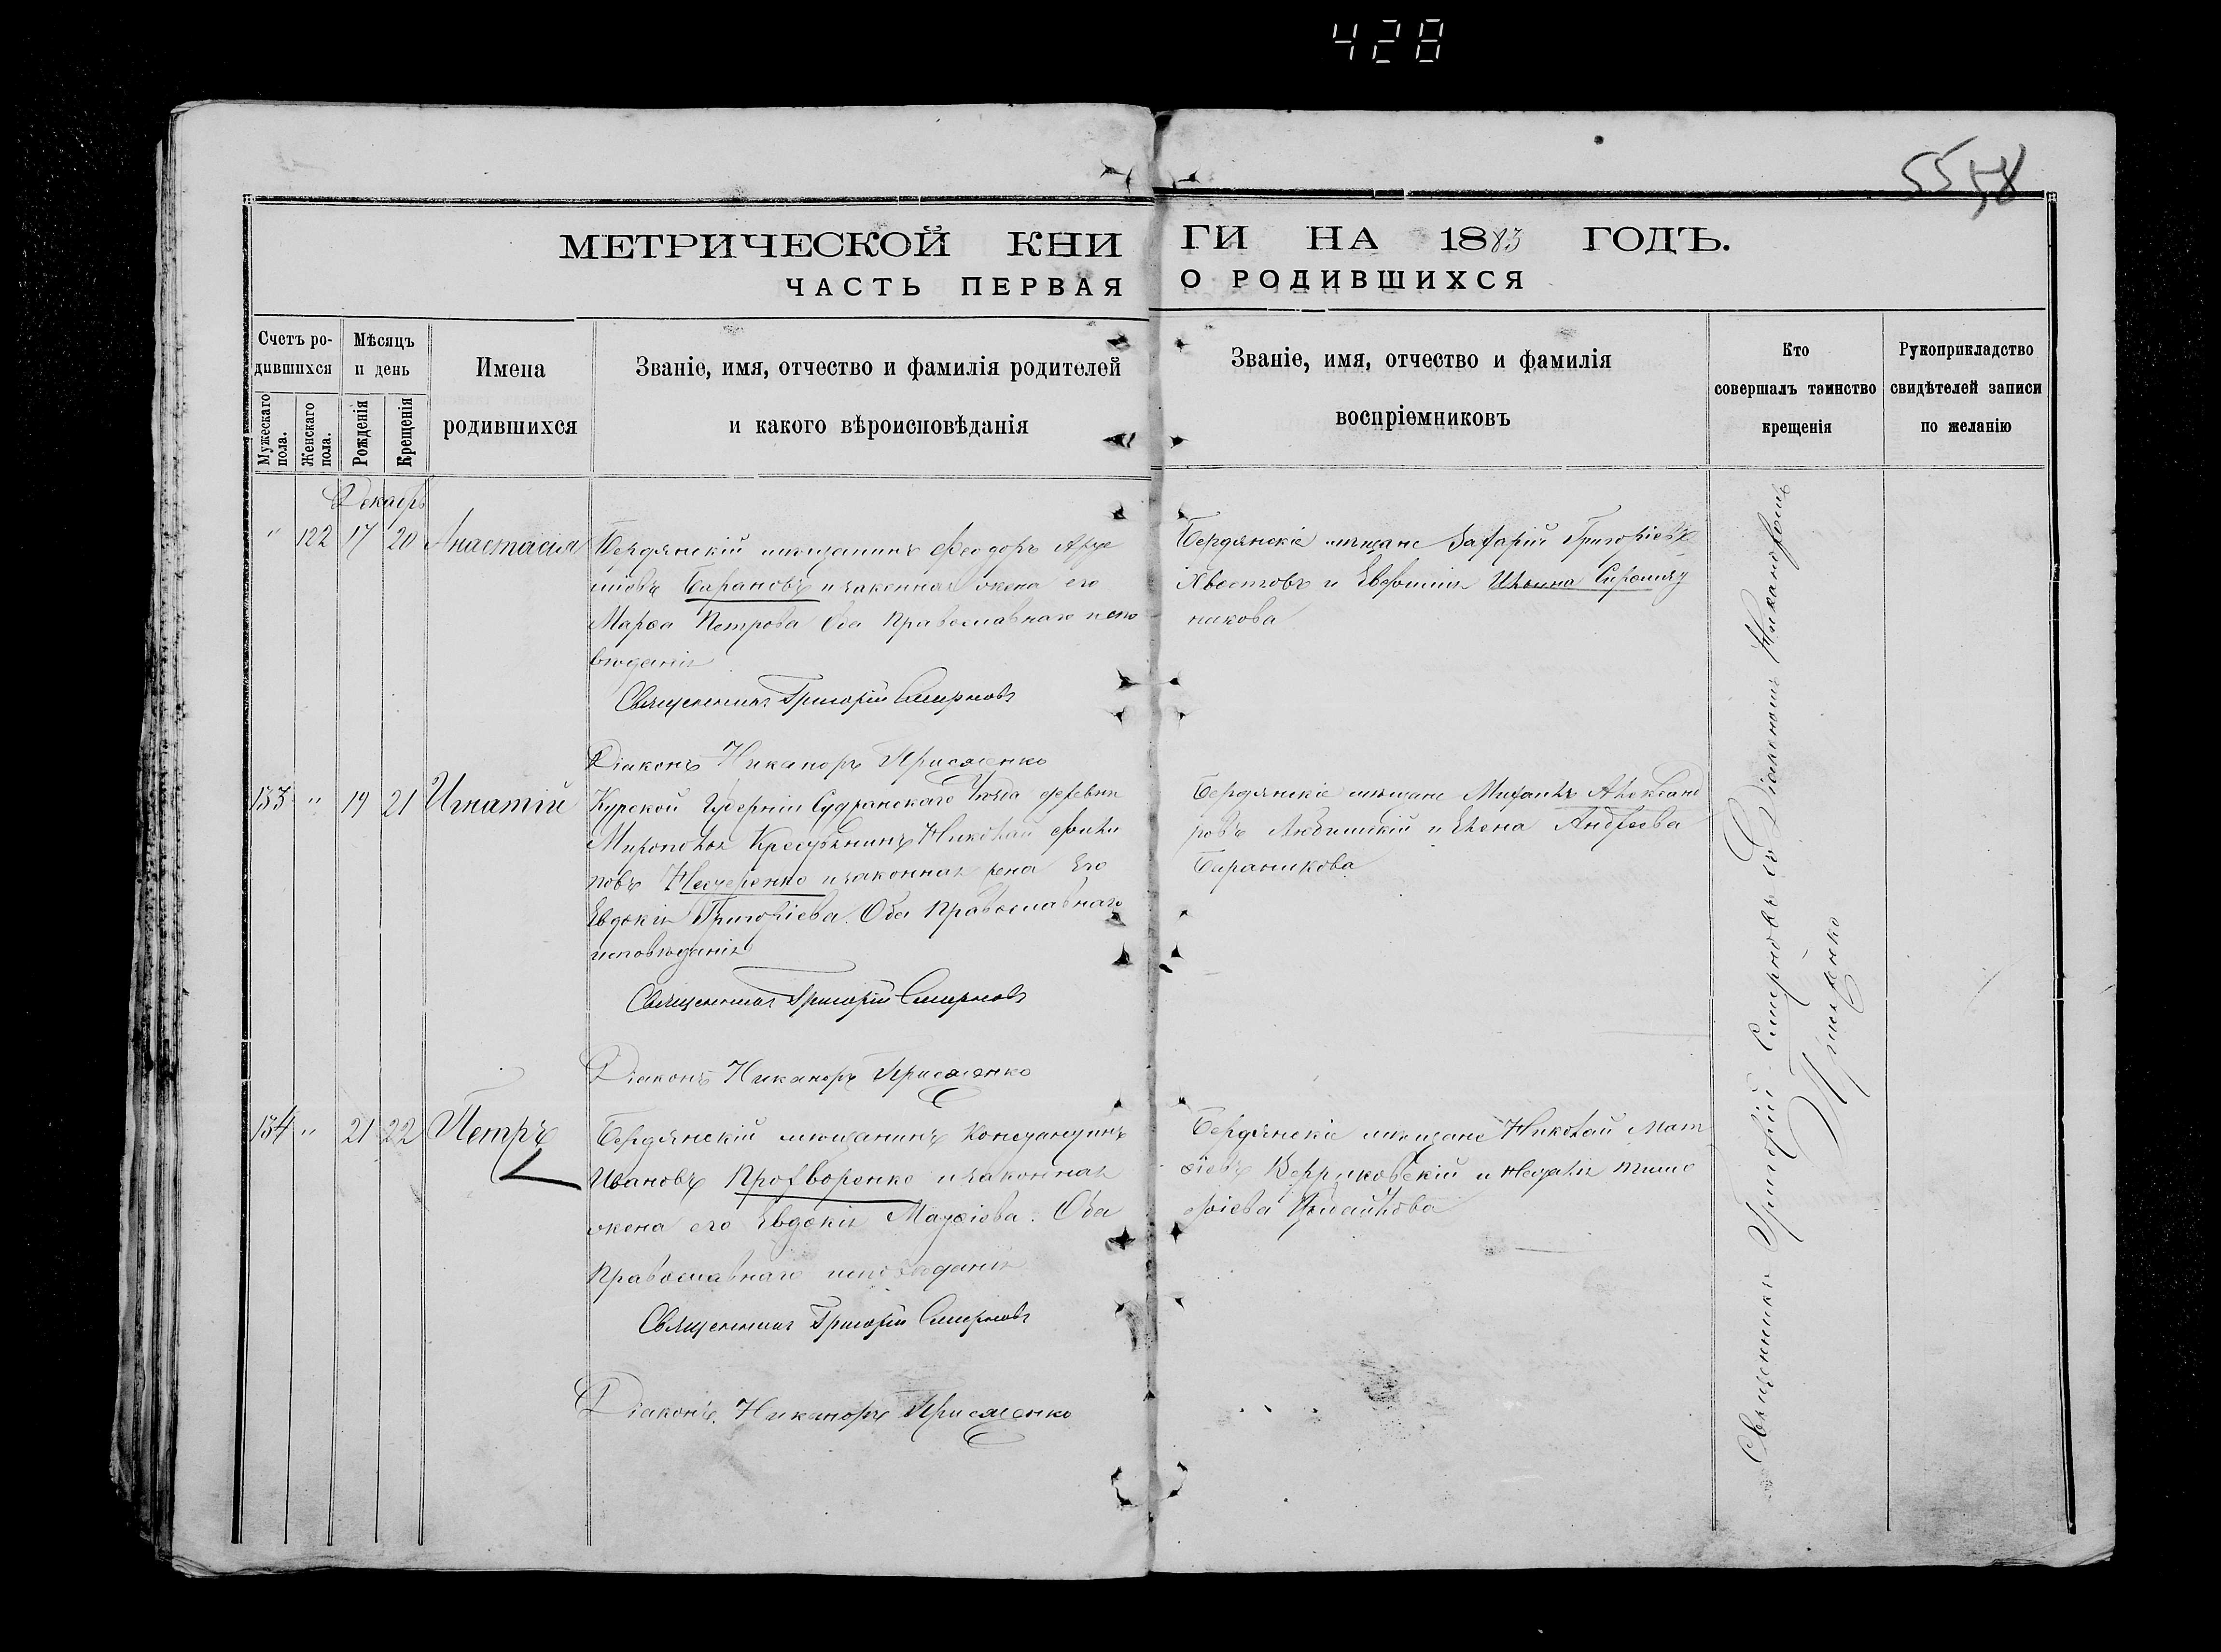 428
55 58
МЕТРИЧЕСКОЙ КНИ ГИ НА 1883 ГОДЪ.
ЧАСТЬ ПЕРВАЯ О РОДИВШИХСЯ
Счетъ ро-
дившихся
Мужескаго пола.
Женскаго пола.
Мѣсяцъ
и день
Рожденія
Крещенія
Имена
родившихся
Званіе, имя, отчество и фамилія родителей
и какого вѣроисповѣданія
Званіе, имя, отчество и фамилія
воспріемниковъ
Кто
совершалъ таинство
крещенія
Рукоприкладство
свидѣтелей записи
по желанію
Декабрь
" 122 17 20 Анастасія
Бердянскій мѣщанинъ Феодоръ
Барановъ и законная жена его
Марѳа Петрова Оба Православнаго испо
вѣданія
Священникъ Григорій Смирновъ
Діаконъ Никаноръ Присяженко
Бердянскіе мѣщане Захарій Григорьевъ
Хвостовъ и Евфимія
никова
133 " 19 21 Игнатій
Курской Губерніи Суджанскаго Уѣзда деревни
Мирополья Крестьянинъ Николай Фили
повъ Нестеренко и законная жена Его
Евдокія Григоріева. Оба Православнаго
исповѣданія
Священникъ Григорій Смирновъ
Діаконъ Никаноръ Присяженко
Бердянскіе мѣщане Михаилъ Александ
ровъ и Елена Андреева
Бараникова
134 " 21 22 Петръ
Бердянскій мѣщанинъ Константинъ
Ивановъ Прохворенко и законная
жена его Евдокія Матѳіева. Оба
Православнаго исповѣданія
Священникъ Григорій Смирновъ
Діаконъ Никаноръ Присяженко
Бердянскіе мѣщане Николай Мат
ѳіевъ и Наталія Тимо
фіева
Священникъ Григорій Смирновъ съ Діакономъ Никаноромъ
Присяженко